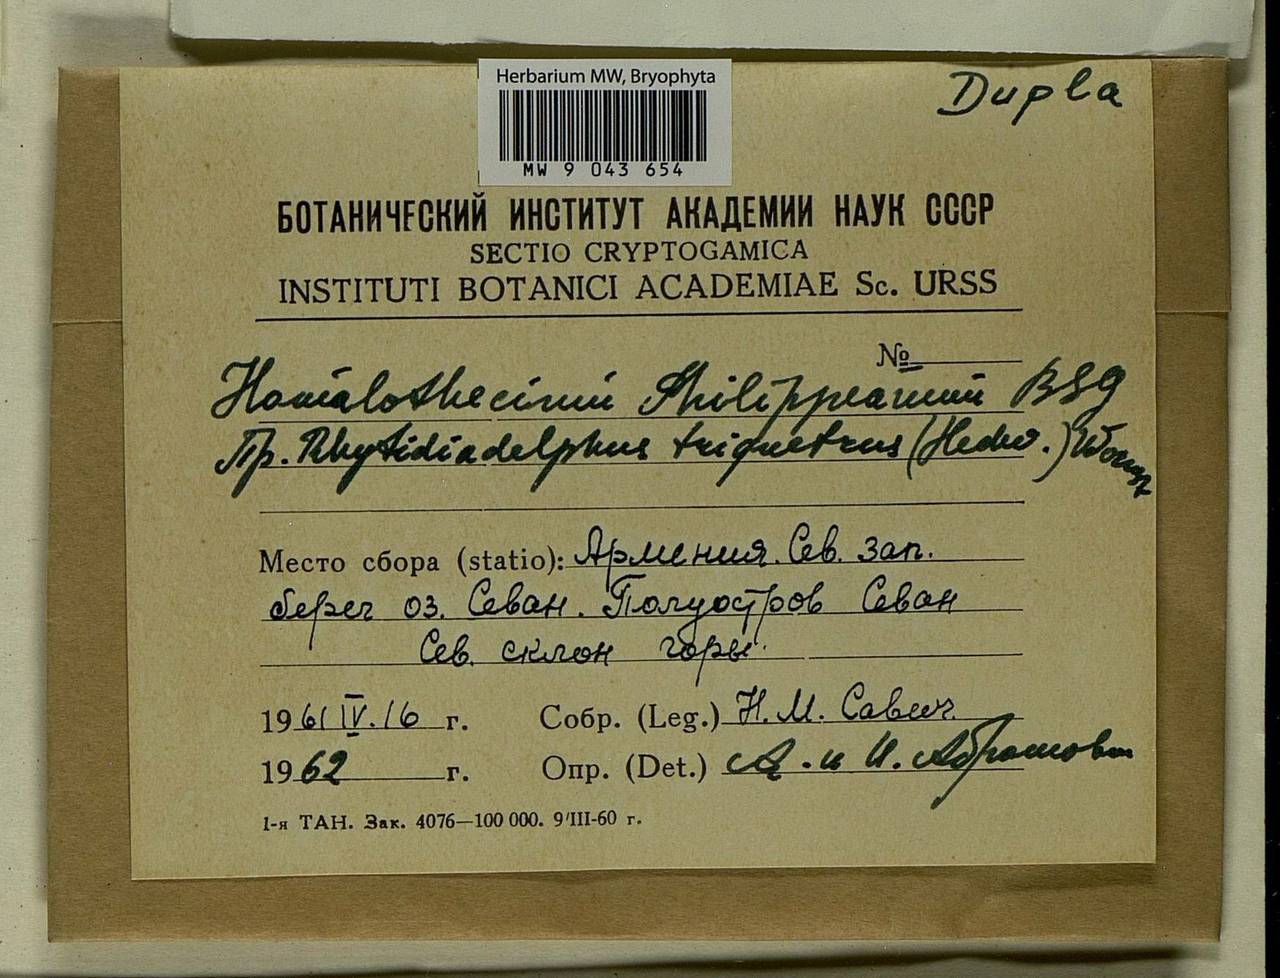 Herbarium MW, Bryophyta
MW 9 043 654
Dupla
БОТАНИЧЕСКИЙ ИНСТИТУТ АКАДЕМИИ НАУК СССР
SECTIO CRYPTOGAMICA
INSTITUTI BOTANICI ACADEMIAE Sc. URSS
№
Homalothecium Philippeanum BSG
Пр. Rhytidiadelphus triquetrus (Hedw.) Warnst
Место сбора (statio): Армения. Сев. зап.
берег оз. Севан. Полуостров Севан
Сев. склон горы.
1961 IV.16 г. Собр. (Leg.) Н.М. Савич
1962 г. Опр. (Det.) А. и И. Абрамовы
1-я ТАН. Зак. 4076—100 000. 9/III-60 г.